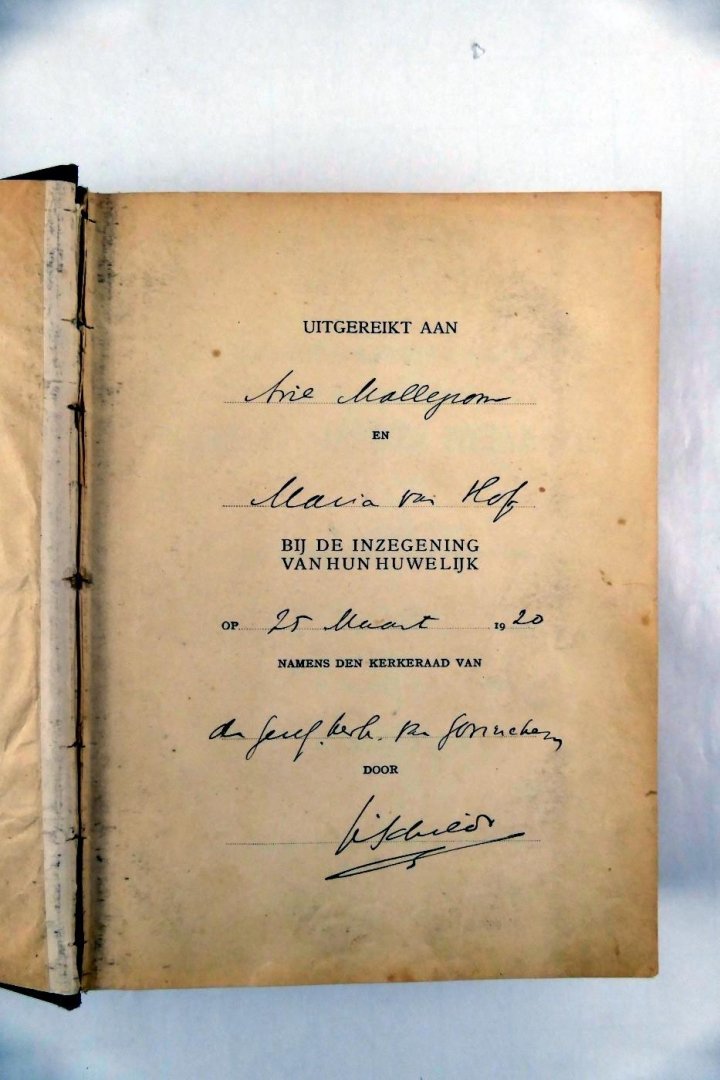 UITGEREIKT AAN
Arie Mallegrom
EN
Maria van Hof
BIJ DE INZEGENING
VAN HUN HUWELIJK
OP 25 Maart 1920
NAMENS DEN KERKERAAD VAN
de Geref. Kerk. van Gorinchem
DOOR
K Schilder